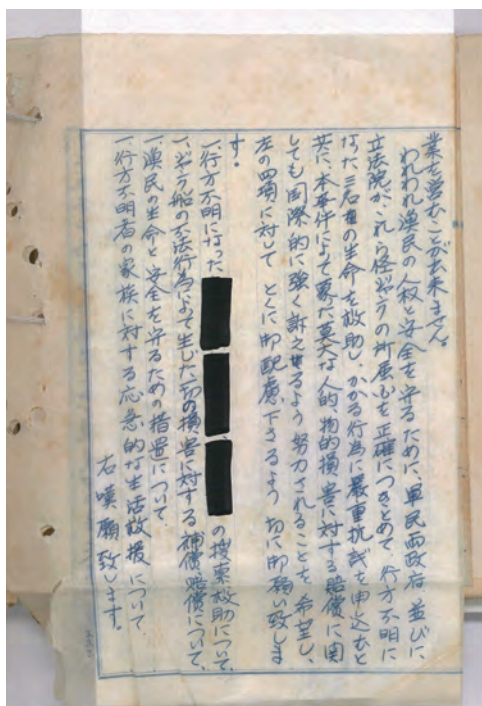 業を営むことが出来ません。
われわれ漁民の人权と安全を守るために、軍民両政府並びに、
立法院が、これら怪ジャンクの所属心を正確につきとめて 行方不明に
なった三名の生命を救助し、かゝる行為に嚴重抗議を申込むと
共に、本事件によって蒙た莫大な人的、物的損害に対する賠償に関
しても国際的に強く訴えせるよう努力されることを希望し、
左の四項に対して とくに御配慮下さるよう 切に御願い致しま
す。
一、行方不明になった の捜索救助について、
一、ジャンク船の不法行為によって生じた一切の損害に対する補償賠償について、
一、漁民の生命と安全を守るための措置について
一、行方不明者の家族に対する応急的な生活救援について
右嘆願致します。